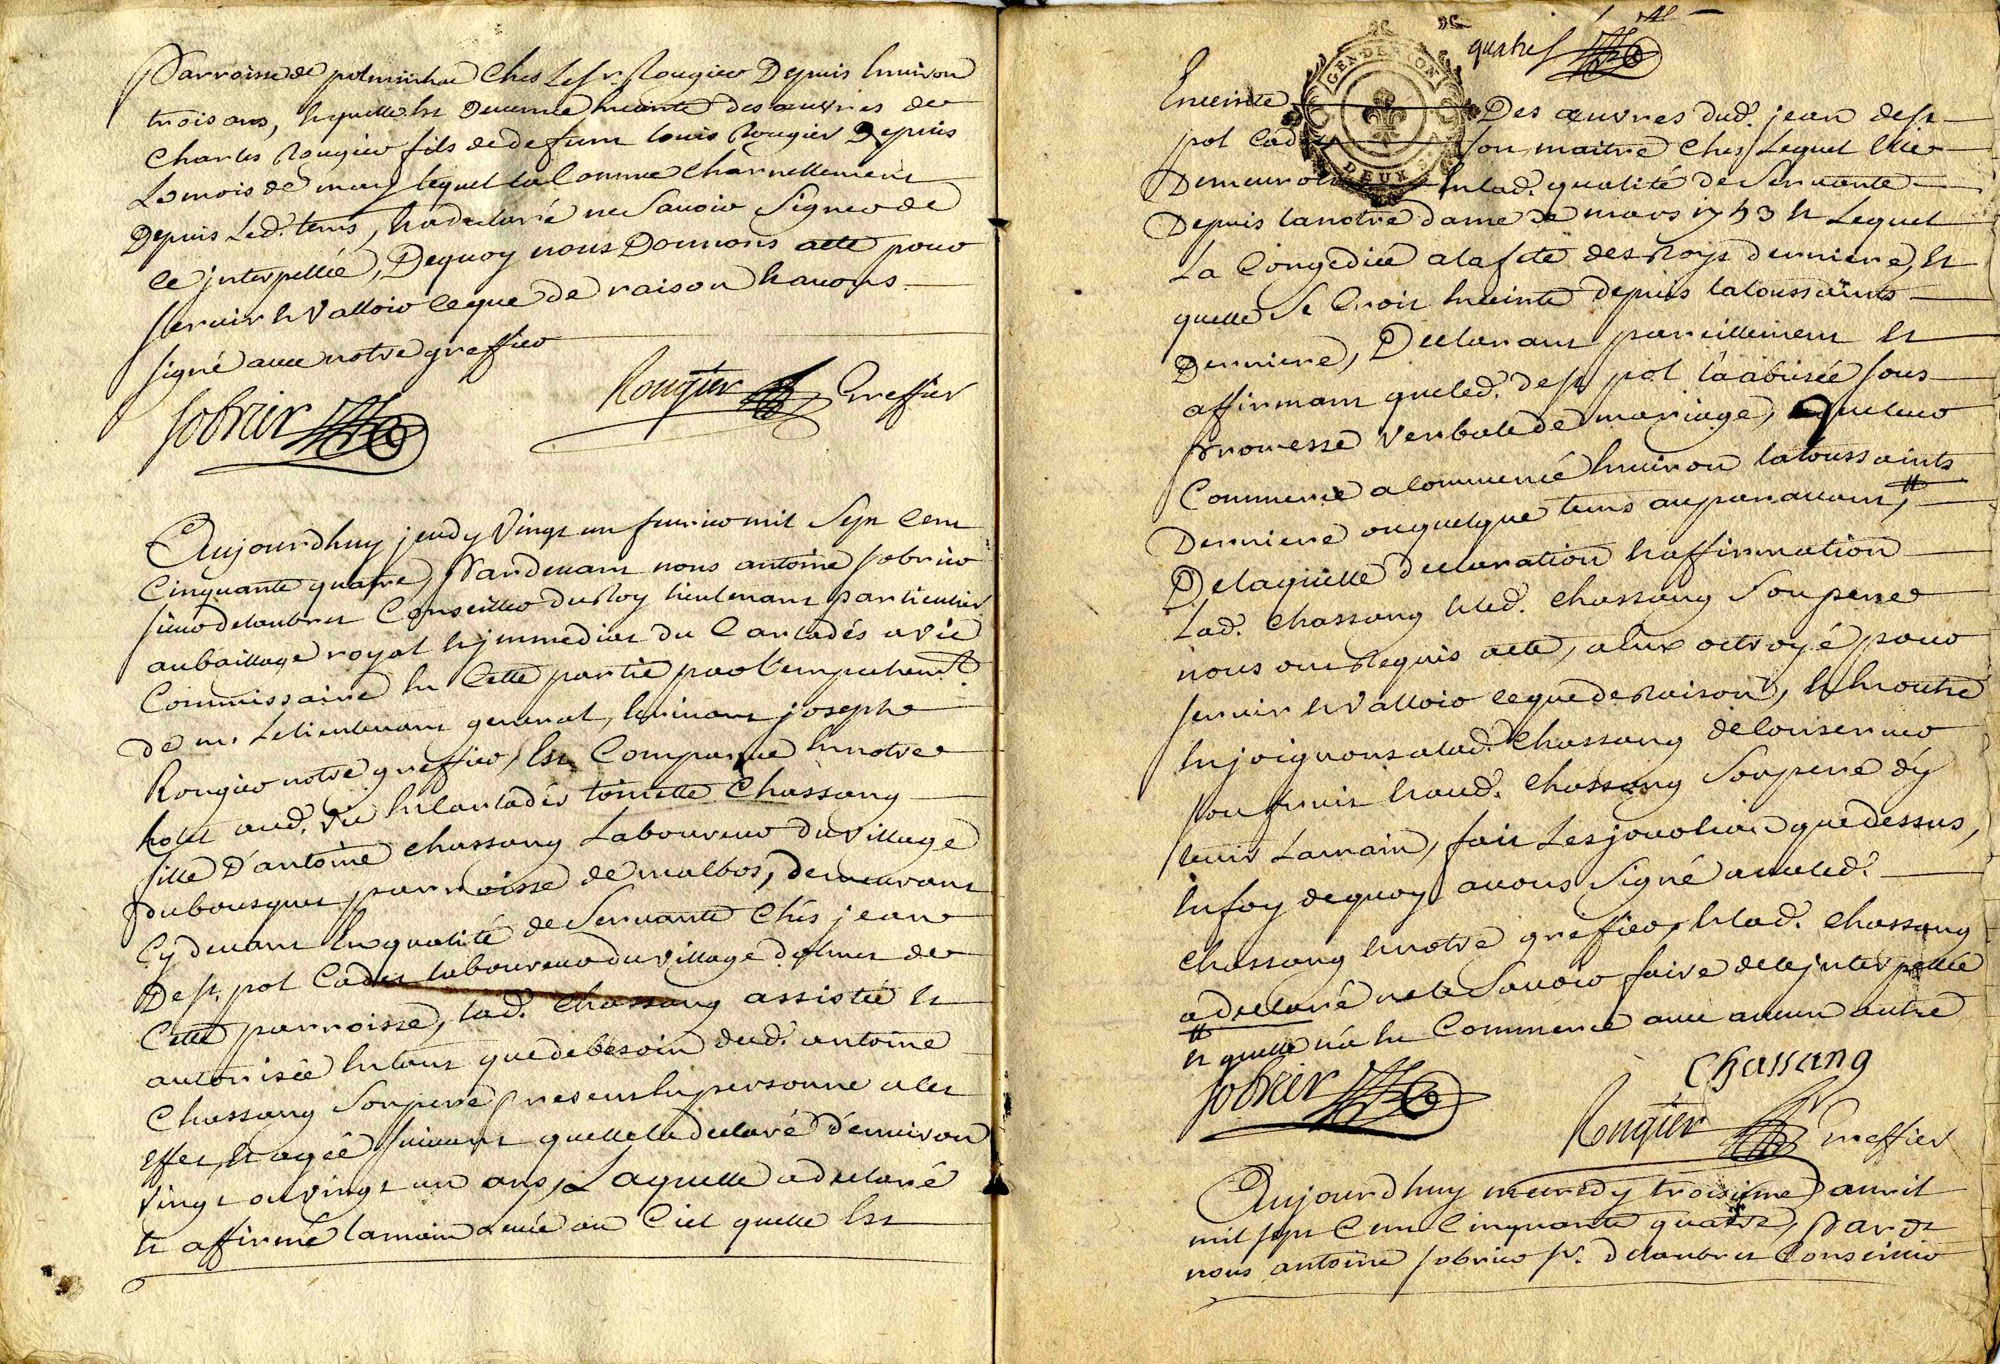 Parroisse de polminhac Ches Le Sr Rougier Depuis Environ
trois ans, Equelle Est Devenue Enceinte des œuvres de
Charles Rougier fils de defunt louis Rougier Depuis
Le mois de may lequel la Connue Charnellement
Depuis Led. tems, Ea declaré ne Savoir Signer de
ce jnterpellée, Dequoy nous Donnons acte pour
servir Et Valloir ce que de raison Et avons
signé avec notre greffier
Sobrier Rougier Greffier
Aujourdhuy jeudy Vingt un fevrier mil Sept Cent
Cinquante quatre, Pardevant nous antoine Sobrier
sieur delaubret Conseiller du Roy lieutenant particulier
au baillage royal Et jmmediat du Carladés a vic
Commissaire En Cette partie par l'empechemt.
de m. Le lieutenant general, Ecrivant joseph
Rougier notre greffier, Est Comparue En notre
hotel aud. vic En Carladés toinette Chassang
fille D'antoine Chassang Laboureur du village
du bousquet, parroisse de malbos, demeurant
Cy devant En qualité de Servante Chés jean
Dest. pol Cadet laboureur du village de
Cette parroisse, lad. Chassang assistée Et
autorisée En tant que de besoin dud. antoine
Chassang Son pere present En personne a cet
effet, Et agée suivant quelle la declaré d'environ
vingt ou vingt un ans, Laquelle a declaré
Et affirmé la main levée au Ciel quelle Est
quatre
GEN DE RION
DEUX S
Enceinte Des œuvres dud. jean dest
pol Cadet Son maitre Ches Lequel Elle
Demeuroit En lad. qualité de Servante
Depuis la notre dame de mars 1753 Et Lequel
La Congediée a la fete des Roys derniere, Et
quelle Se Croit Enceinte depuis la toussaints
Derniere, Declarant pareillement Et
affirmant que led. dest pol l'a abusée sous
Promesse Verbale de mariage, Et que leur
Commerce a Commencé Environ la toussaints
Derniere ou quelque tems auparavant, #
De laquelle declaration Et affirmation
Lad. Chassang Et led. Chassang Son pere
nous ont Requis acte, a Eux octroyé pour
servir Et Valloir ce que de Raison, Et En outre
Enjoignons a lad. Chassang de Conserver
son fruit Et aud. Chassang Son pere d'y
tenir La main, fait Les jour et an que dessus,
En foy de quoy avons Signé avec led.
Chassang Et notre greffier, Et lad. Chassang
a declaré ne le Savoir faire de ce jnterpellée
# Et quelle n'a Eu Commerce avec aucun autre
Sobrier Chassang
Rougier Greffier
Aujourdhuy mercredy troisieme avril
mil sept Cent Cinquante quatre, Pardt
nous antoine Sobrier sr. delaubret Conseiller